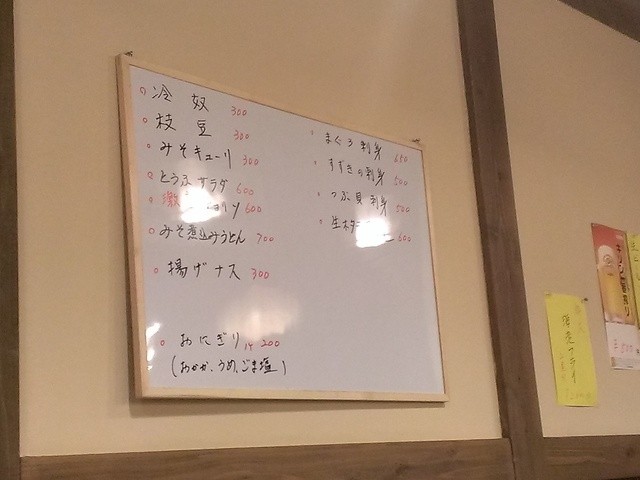 冷奴 300
枝豆 300
みそキューリ 300
とうふサラダ 600
600
みそ煮込みうどん 700
揚げナス 300
おにぎり 1ケ 200
(おかか、うめ、ごま塩)
まぐろ刺身 650
すずきの刺身 500
つぶ貝刺身 500
生ホタ 600
キリン一番搾り